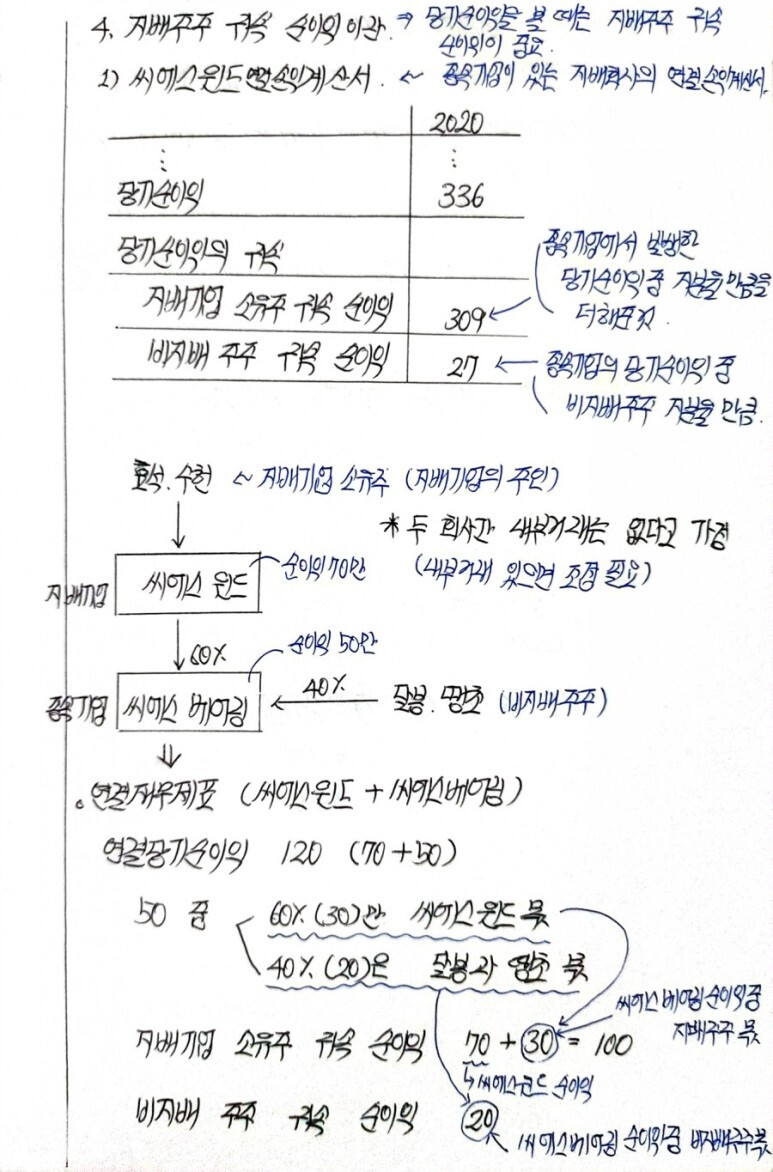 4. 지배주주 귀속 순이익이란 ⇒ 당기순이익을 볼 때는 지배주주 귀속
순이익이 중요.
1) 씨에스윈드 연결손익계산서. ← 종속기업이 있는 지배회사의 연결손익계산서.
2020
⋮ ⋮
당기순이익 336
당기순이익의 귀속
종속기업에서 발생한
당기순이익 중 지분율만큼을
더해준것.
지배기업 소유주 귀속 순이익 309
비지배 주주 귀속 순이익 27 ← 종속기업의 당기순이익 중
비지배주주 지분율만큼.
효석. 수현 ← 지배기업 소유주 (지배기업의 주인)
* 두 회사간 내부거래는 없다고 가정
(내부거래 있으면 조정 필요)
지배기업 씨에스 윈드 순이익 70만
60%
순이익 50만
종속기업 씨에스 베어링 ← 40% 달봉. 땡초 (비지배주주)
⇓
。연결재무제표 (씨에스윈드 + 씨에스베어링)
연결당기순이익 120 (70+50)
50 중 60% (30)만 씨에스윈드 몫
40% (20)은 달봉과 땡초 몫
씨에스베어링 순이익 중
지배주주 몫
지배기업 소유주 귀속 순이익 70 + 30 = 100
↳ 씨에스윈드 순이익
비지배 주주 귀속 순이익 20
씨에스베어링 순이익 중 비지배주주 몫